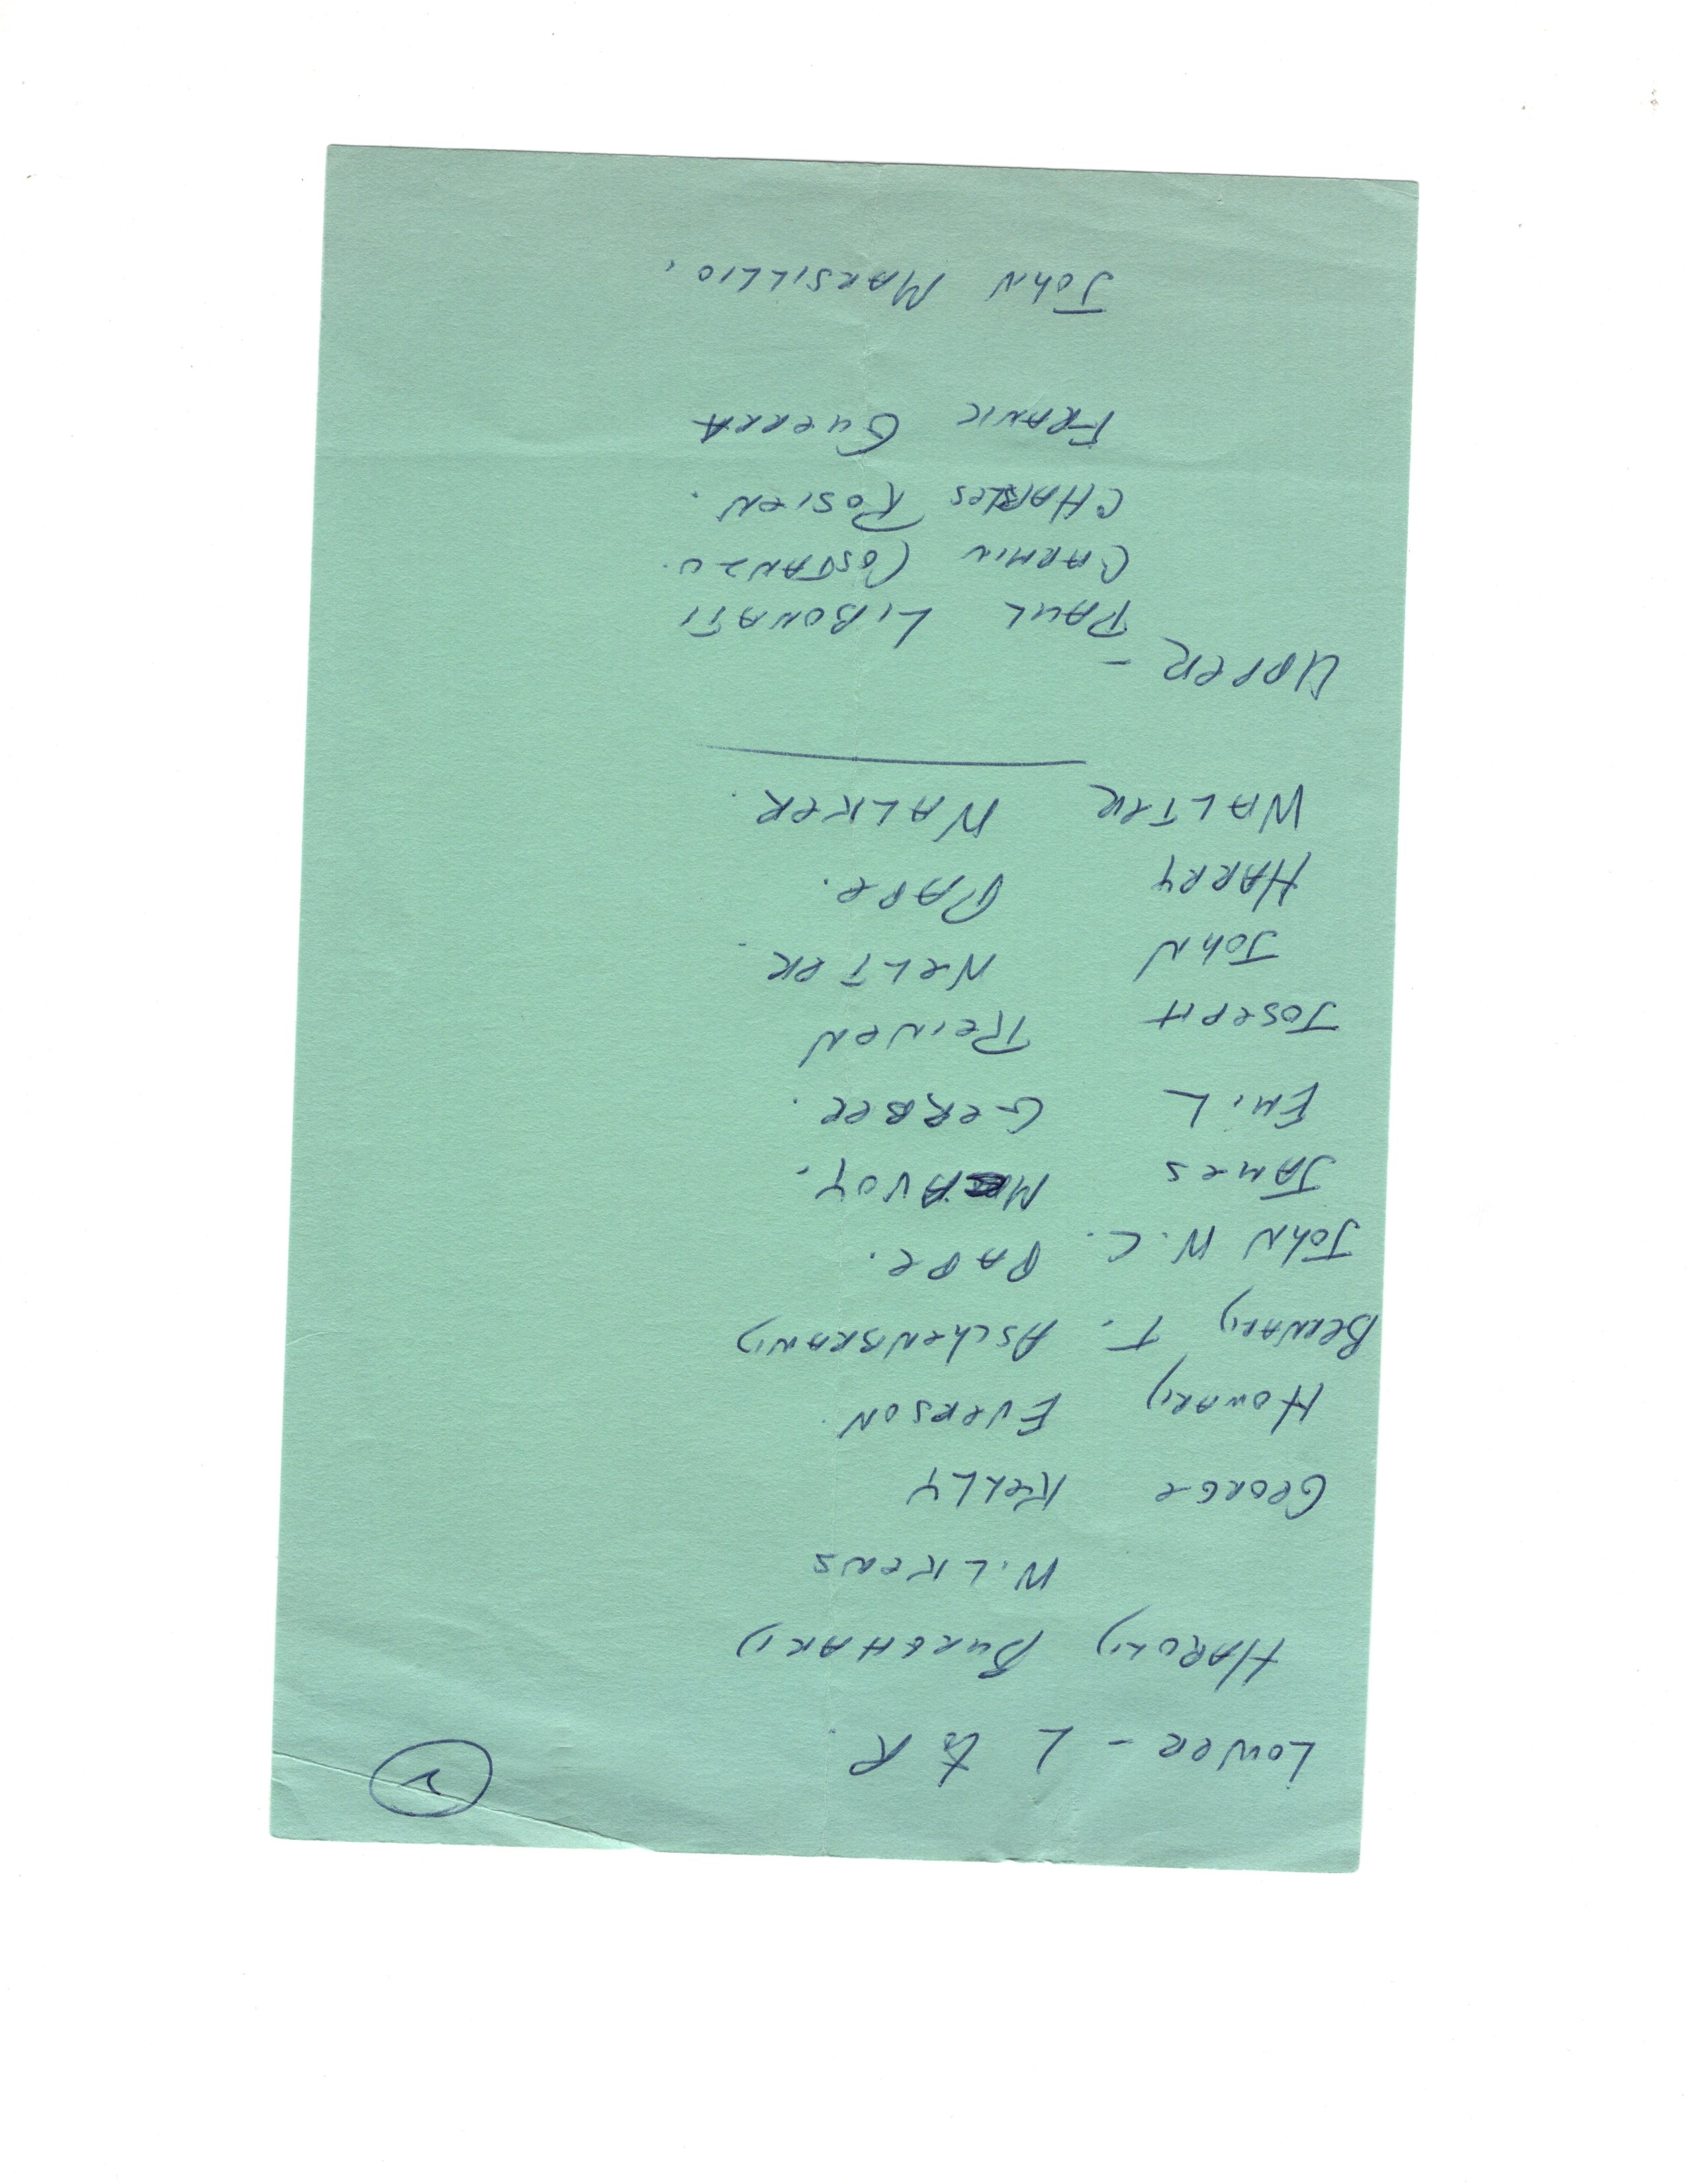 2
LOWER - L & R.
HAROLD BURGHARD
WILKENS
GEORGE KELLY
HOWARD EVERSON.
BERNARD T. ASCHENBRAND
JOHN W. C. PAPE.
JAMES McAVOY.
EMIL GERBER.
JOSEPH REINEN
JOHN WELTER.
HARRY PAPE.
WALTER WALKER.
UPPER -
PAUL LIBONATI
CARMIN COSTANZO.
CHARLES ROSIEN.
FRANK GUERRA
JOHN MARSILLIO.